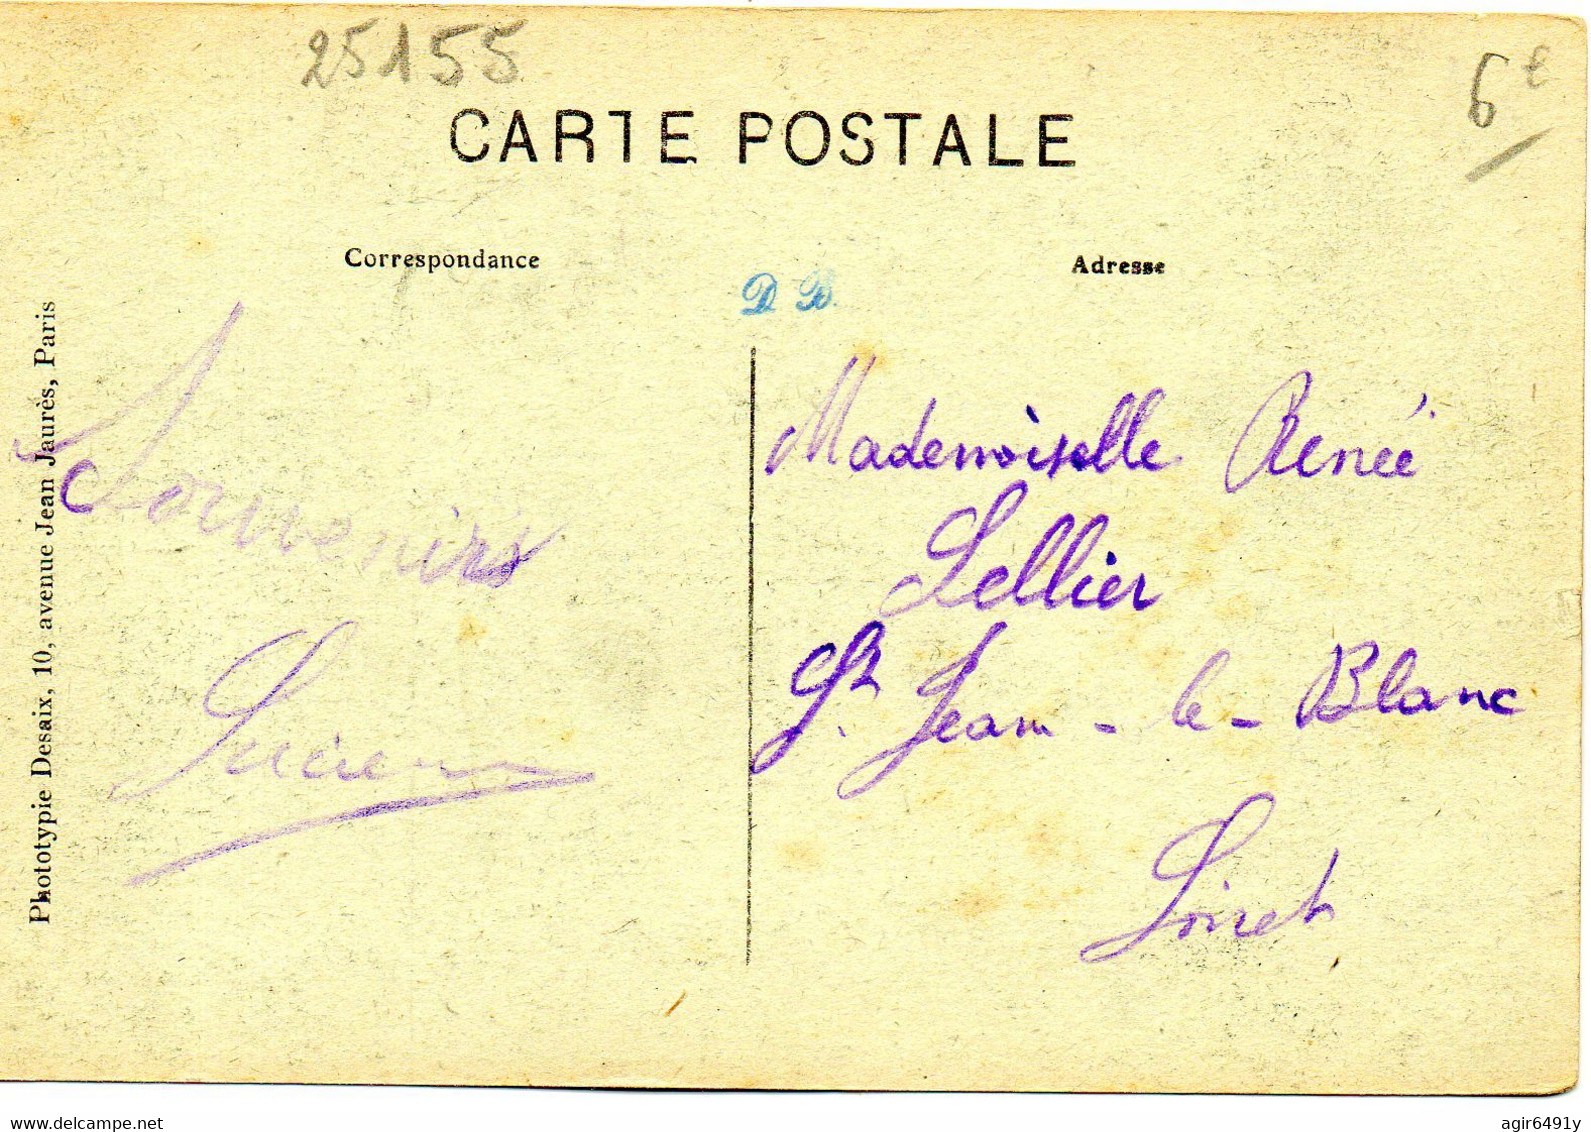 25155
6€
CARTE POSTALE
Correspondance
Adresse
D B.
Souvenirs
Lucien
Mademoiselle Renée
Lellier
St Jean-le-Blanc
Loiret
Phototypie Desaix, 10, avenue Jean Jaurès, Paris
www.delcampe.net
agir6491y